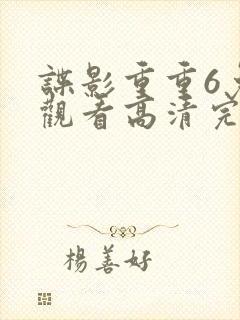 諜影重重6
觀看高清完
楊善好